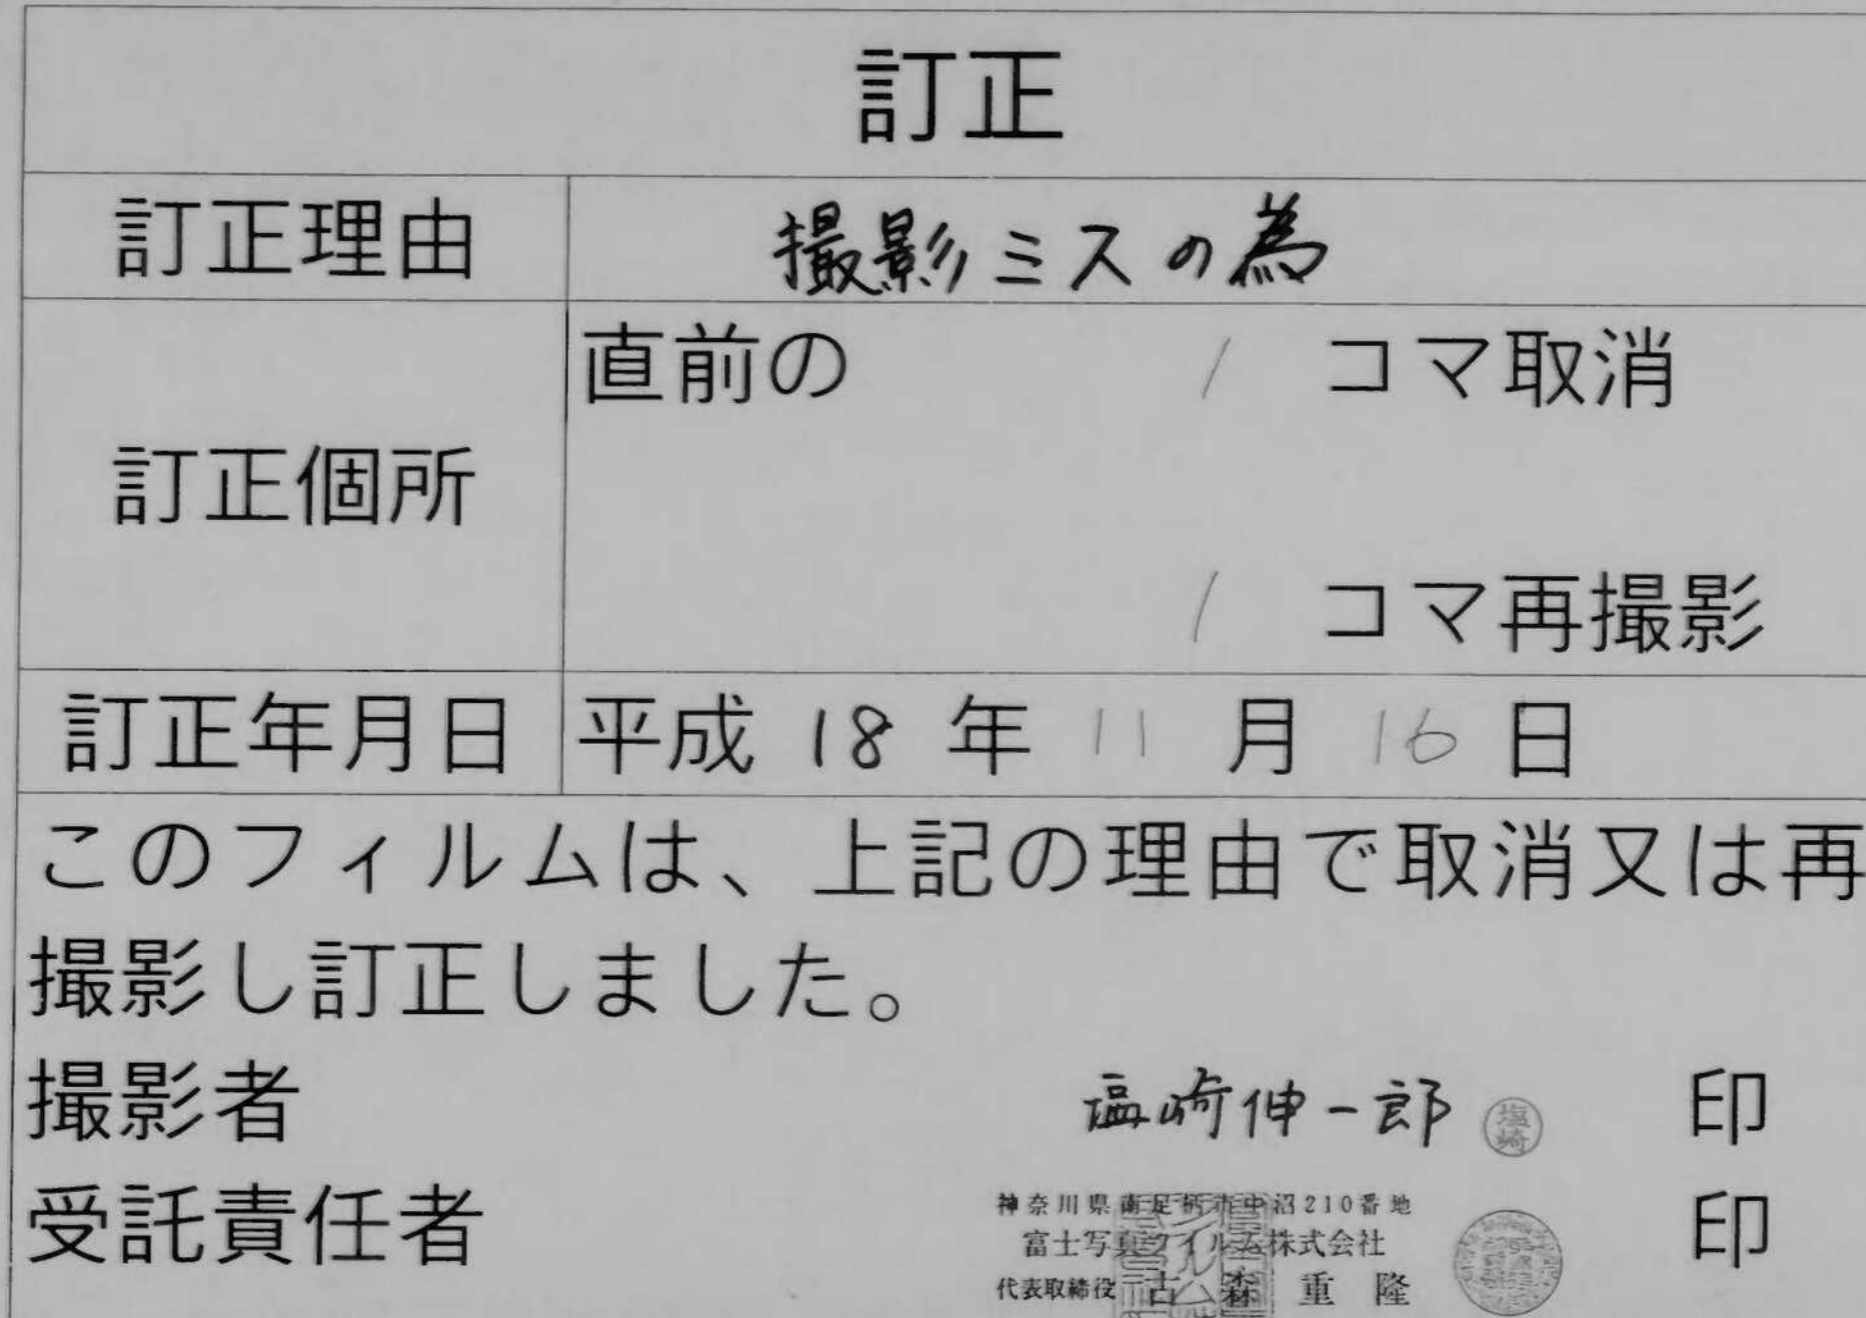 訂正
訂正理由 撮影ミスの為
直前の 1 コマ取消
訂正個所
1 コマ再撮影
訂正年月日 平成 18 年 11 月 16 日
このフィルムは、上記の理由で取消又は再
撮影し訂正しました。
撮影者 塩崎伸一郎 塩崎 印
受託責任者 印
神奈川県南足柄市中沼210番地
富士写真フイルム株式会社
代表取締役 古森重隆